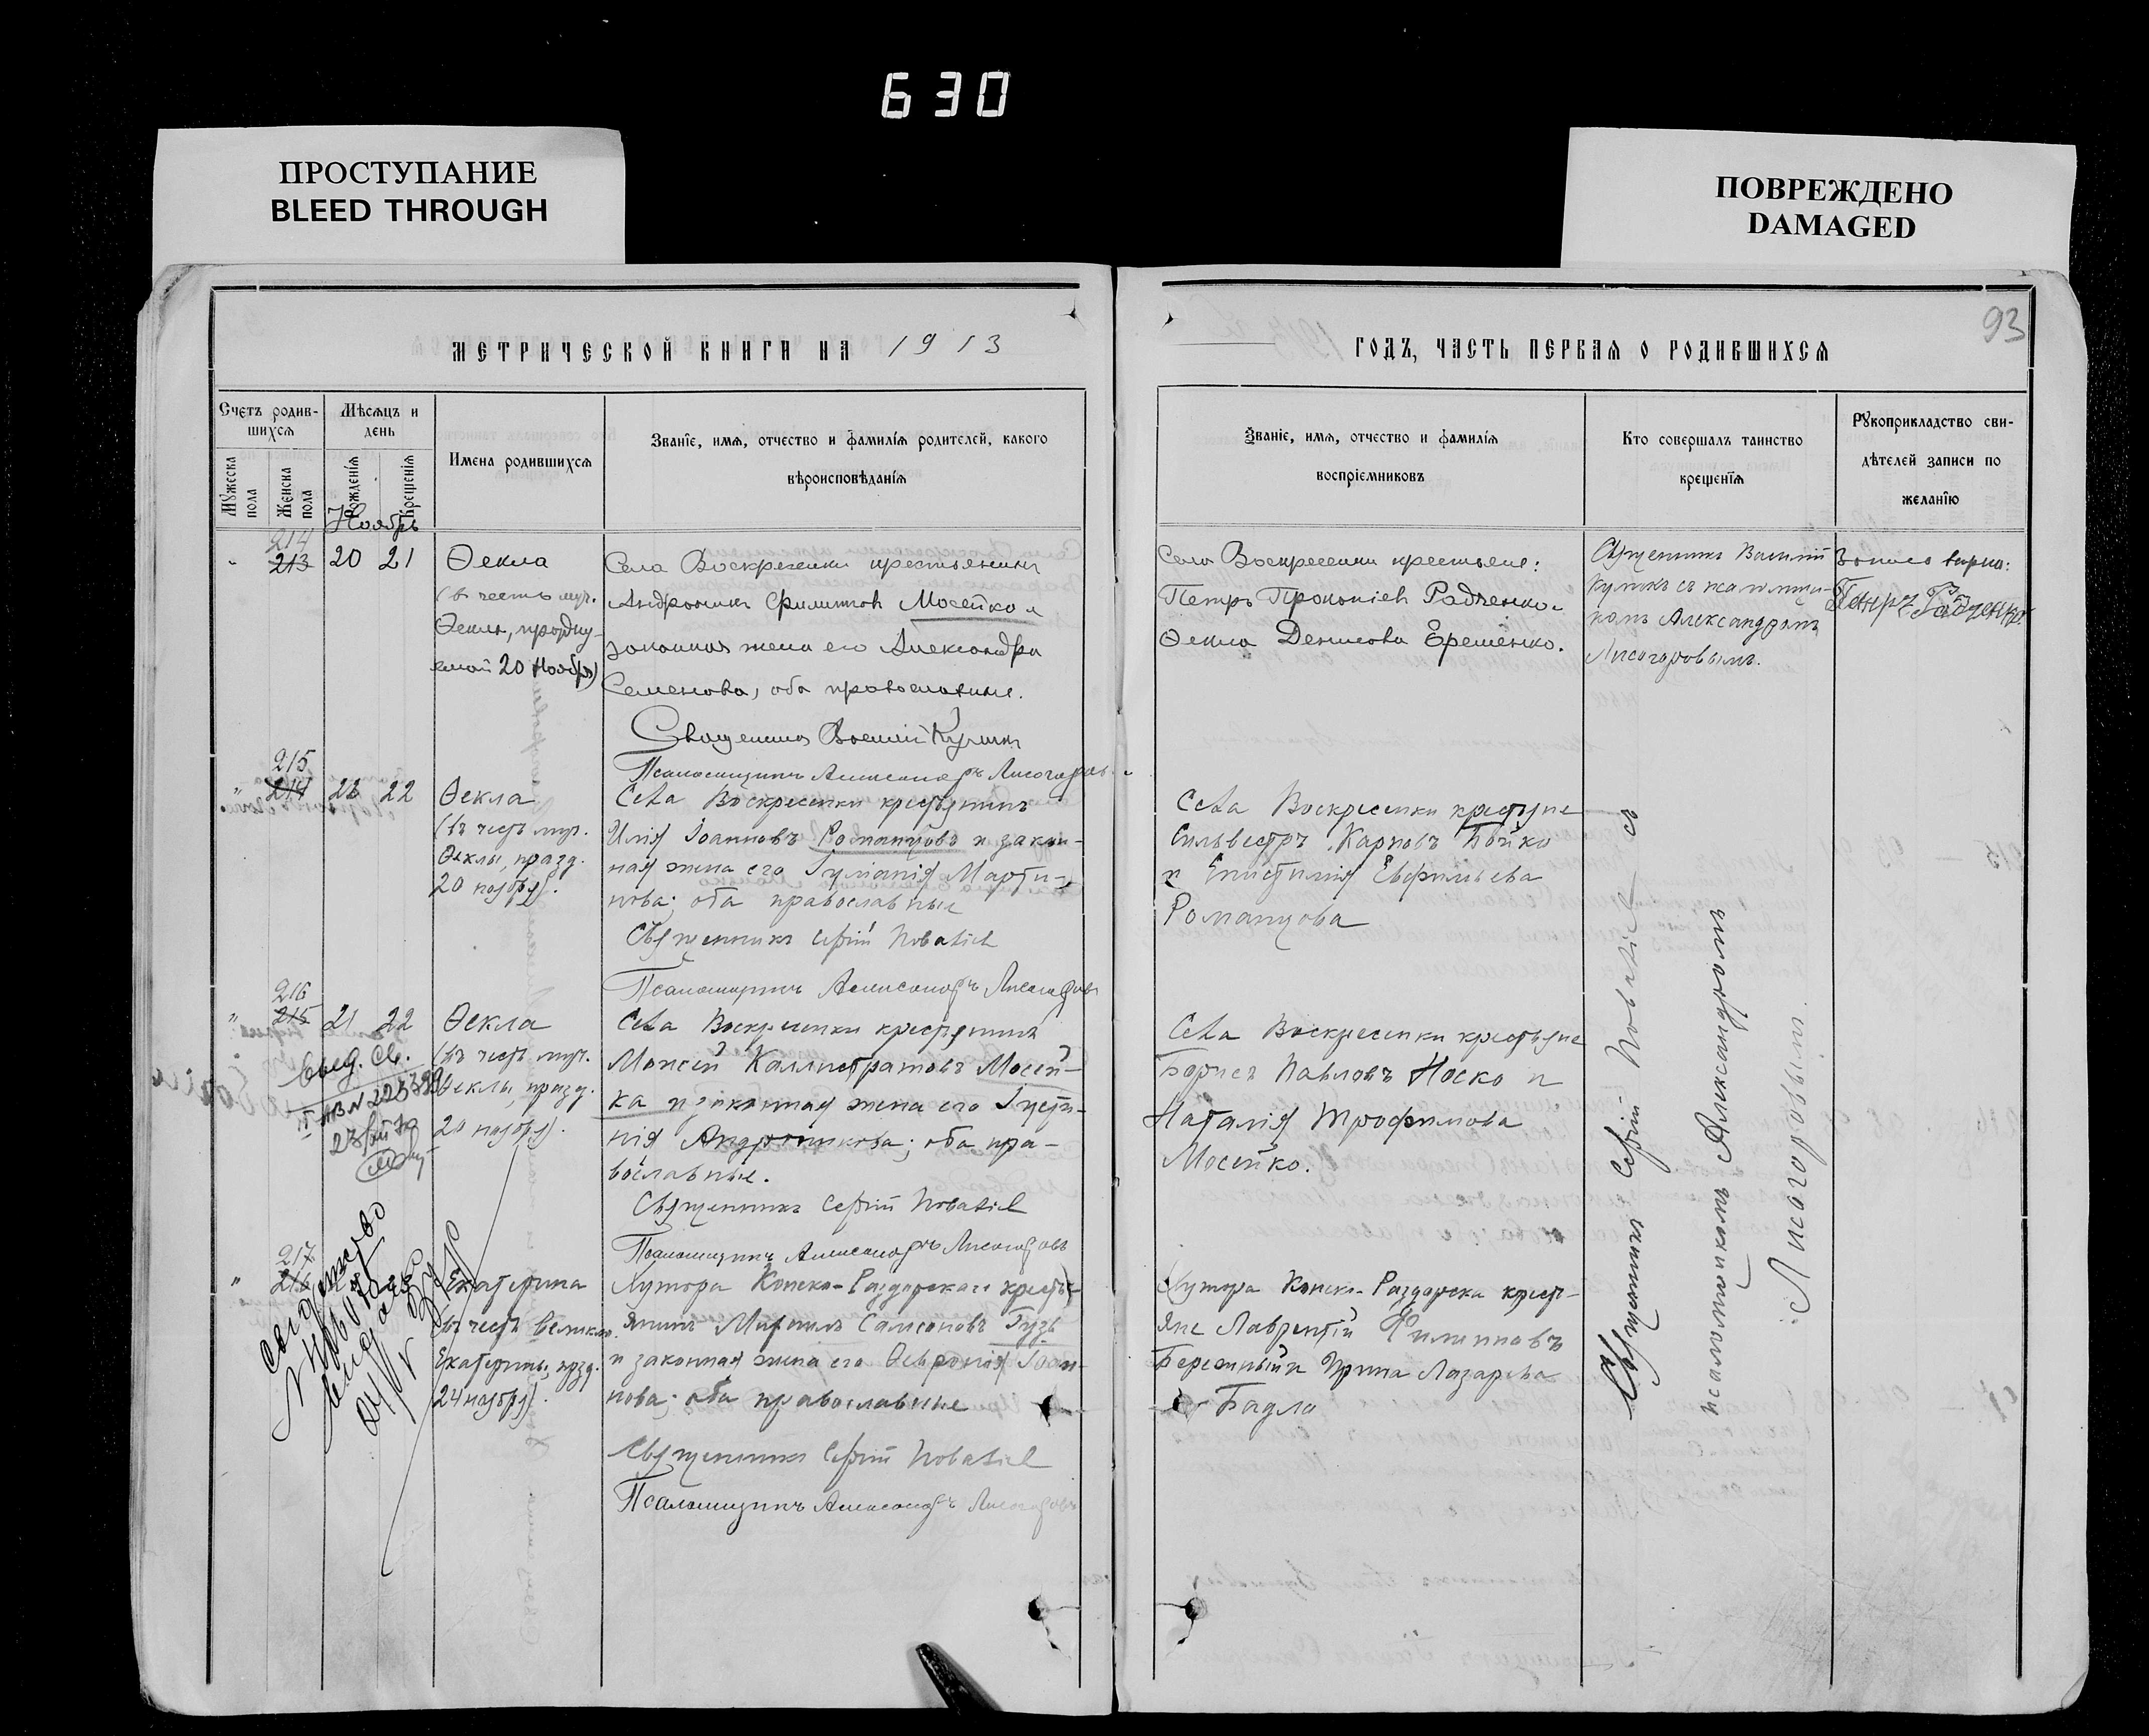 630
ПРОСТУПАНИЕ
BLEED THROUGH
ПОВРЕЖДЕНО
DAMAGED
93
МЕТРИЧЕСКОЙ КНИГИ НА 1913
ГОДЪ, ЧАСТЬ ПЕРВАЯ О РОДИВШИХСЯ
Счетъ родив-
шихся
Мѣсяцъ и
день
Мужеска пола
Женска пола
Рожденія
Крещенія
Имена родившихся
Званіе, имя, отчество и фамилія родителей, какого
вѣроисповѣданія
Званіе, имя, отчество и фамилія
воспріемниковъ
Кто совершалъ таинство
крещенія
Рукоприкладство сви-
дѣтелей записи по
желанію
Ноябрь
214
213 20 21
Ѳекла
(въ честь муч.
Ѳеклы, праздну-
емой 20 Ноября)
Села Воскресенки крестьянинъ
Андроникъ Филиповъ Мосейко и
законная жена его Александра
Семенова, оба православные.
Священникъ Василій Куликъ
Псаломщикъ Александръ Лисогоровъ
Села Воскресенки крестьяне:
Петръ Прокопіевъ Радченко и
Ѳекла Денисова Ерещенко.
Священникъ Василій
Куликъ съ псаломщи-
комъ Александромъ
Лисогоровымъ.
Запись вѣрна:
Петръ Радченко
215
214 22
Ѳекла
(въ честь муч.
Ѳеклы, празд.
20 ноября).
Села Воскресенки крестьянинъ
Илія Іоанновъ Романцовъ и закон-
ная жена его Іуліанія Марти-
нова; оба православные
Священникъ Сергій Новаьіев
Псаломщикъ Александръ Лисогоровъ
Села Воскресенки крестьяне
Сильвестръ Карповъ Бойко
и Епистимія Евфиміева
Романцова
216
215 21 22
Ѳекла
(въ честь муч.
Ѳеклы, празд.
20 ноября).
Села Воскресенки крестьянинъ
Моисей Каллистратовъ Мосей-
ка и законная жена его Іусти-
нія Андроникова; оба пра-
вославные.
Священникъ Сергій
Псаломщикъ Александръ Лисогоровъ
Села Воскресенки крестьяне
Борисъ Павловъ Носко и
Наталія Трофимова
Мосейко.
Выд. св.
217
216
Екатерина
(въ честь великом.
Екатерины, празд.
24 ноября).
Хутора Конско-Раздорскаго кресть-
янинъ Самсоновъ Гузь
и законная жена его Ѳевронія Іоан-
нова; оба православные
Священникъ Сергій
Псаломщикъ Александръ Лисогоровъ
Хутора Конско-Раздорска крест-
яне Лаврентій Филипповъ
Бережный и Ирина Лазарева
Бадло
Священникъ Сергій съ
псаломщикомъ Александромъ
Лисогоровымъ.